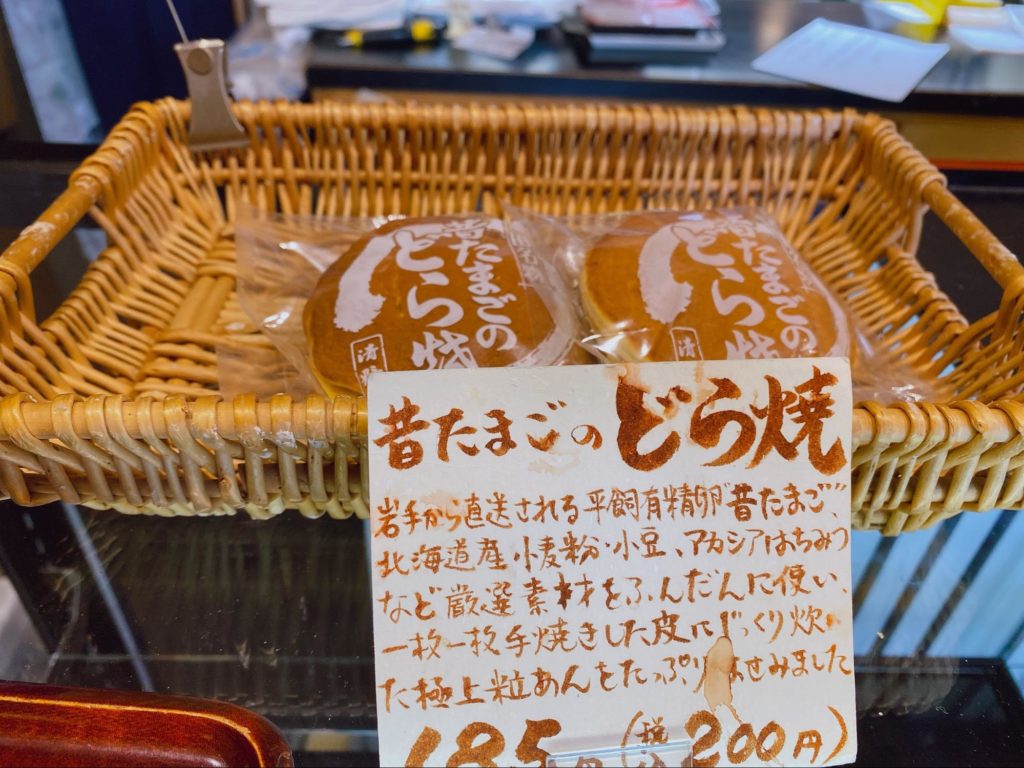 昔たまごの
どら焼
済
昔たまごの
どら焼
済
昔たまごのどら焼
岩手から直送される平飼有精卵"昔たまご"、
北海道産小麦粉・小豆、アカシアはちみつ
など厳選素材をふんだんに使い、
一枚一枚手焼きした皮にじっくり炊い
た極上粒あんをたっぷりはせみました
185円(税込200円)